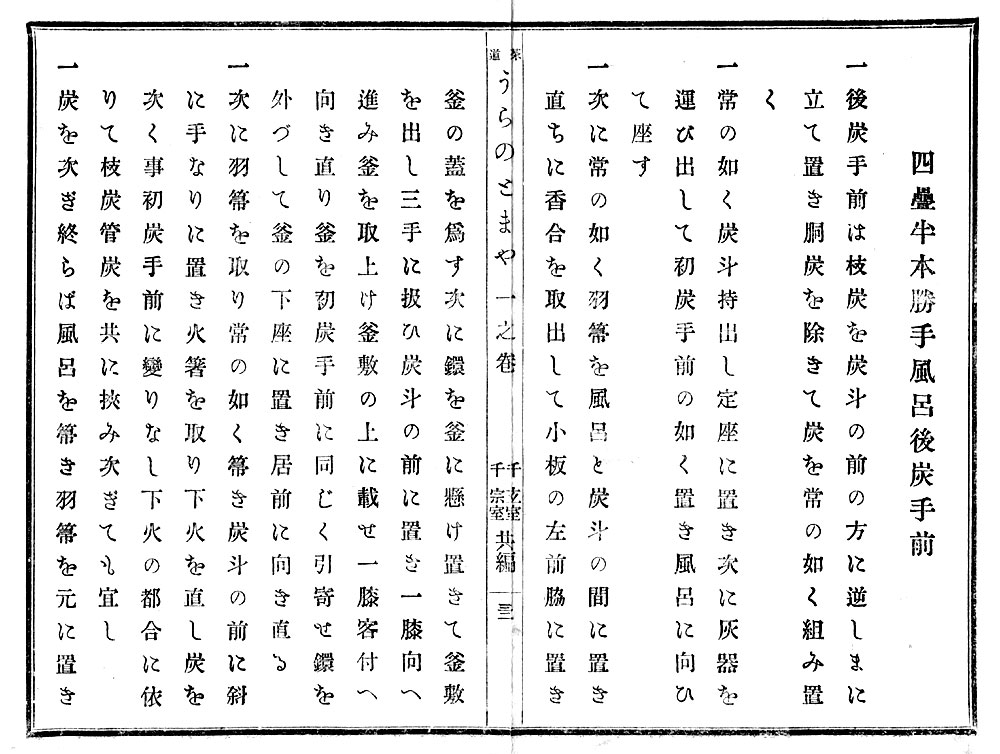 四疊半本勝手風呂後炭手前
一後炭手前は枝炭を炭斗の前の方に逆しまに
立て置き胴炭を除きて炭を常の如く組み置
く
一常の如く炭斗持出し定座に置き次に灰器を
運び出して初炭手前の如く置き風呂に向ひ
て座す
一次に常の如く羽箒を風呂と炭斗の間に置き
直ちに香合を取出して小板の左前脇に置き
茶道うらのとまや一之卷
千玄室
千宗室
共編
三三
釜の蓋を爲す次に鐶を釜に懸け置きて釜敷
を出し三手に扱ひ炭斗の前に置き一膝向へ
進み釜を取上け釜敷の上に載せ一膝客付へ
向き直り釜を初炭手前に同じく引寄せ鐶を
外づして釜の下座に置き居前に向き直る
一次に羽箒を取り常の如く箒き炭斗の前に斜
に手なりに置き火箸を取り下火を直し炭を
次く事初炭手前に變りなし下火の都合に依
りて枝炭管炭を共に挾み次ぎても宜し
一炭を次ぎ終らば風呂を箒き羽箒を元に置き